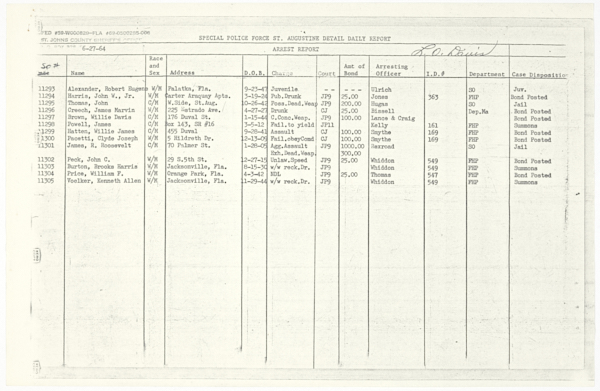 SPECIAL POLICE FORCE ST. AUGUSTINE DETAIL DAILY REPORT
6-27-64 ARREST REPORT L. O. Davis
Race and Sex
Name Address D.O.B. Charge Court Amt of Bond Arresting Officer I.D.# Department Case Disposition
11293 Alexander, Robert Eugene W/M Palatka, Fla. 9-23-47 Juvenile - - - - - Ulrich SO Juv.
11294 Harris, John W., Jr. W/M Carter Apts. 3-19-20 Pub.Drunk JP9 25.00 Jones 363 FHP Bond Posted
11295 Thomas, John C/M W.Side, St.Aug. 10-26-41 Poss.Dead.Weap JP9 200.00 SO Jail
11296 Creech, James Marvin W/M 225 Ave. 4-27-27 Drunk CJ 25.00 Bizzell Dep.Ma Bond Posted
11297 Brown, Willie Davis C/M 176 Duval St. 1-15-44 C.Conc.Weap. JP9 100.00 Lance & Craig Bond Posted
11298 Powell, James C/M Box 143, SR #16 3-5-12 Fail.to yield JP11 Kelly 161 FHP Summons
11299 Hatten, Willie James C/M 455 Duval 9-28-41 Assault CJ 100.00 Smythe 169 FHP Bond Posted
11300 Pacetti, Clyde Joseph W/M 5 Hildreth Dr. 12-13-09 Fail.obeyComd CJ 100.00 Smythe 169 FHP Bond Posted
11301 James, R. Roosevelt C/M 70 Palmer St. 1-28-05 Agg.Assault JP9 1000.00 Saxroad SO Jail
Exh.Dead.Weap. 300.00
11302 Peck, John C. W/M 29 S.5th St. 12-27-15 Unlaw.Speed JP9 25.00 Whiddon 549 FHP Bond Posted
11303 Burton, Brooke Harris W/M Jacksonville, Fla. 8-15-30 w/w reck.Dr. JP9 Whiddon 549 FHP Summons
11304 Price, William F. W/M Orange Park, Fla. 4-3-42 NDL JP9 25.00 Thomas 547 FHP Bond Posted
11305 Voelker, Kenneth Allen W/M Jacksonville, Fla. 11-29-44 w/w reck.Dr. JP9 Whiddon 549 FHP Summons